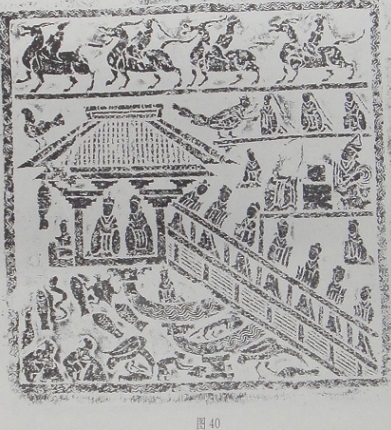 图 40